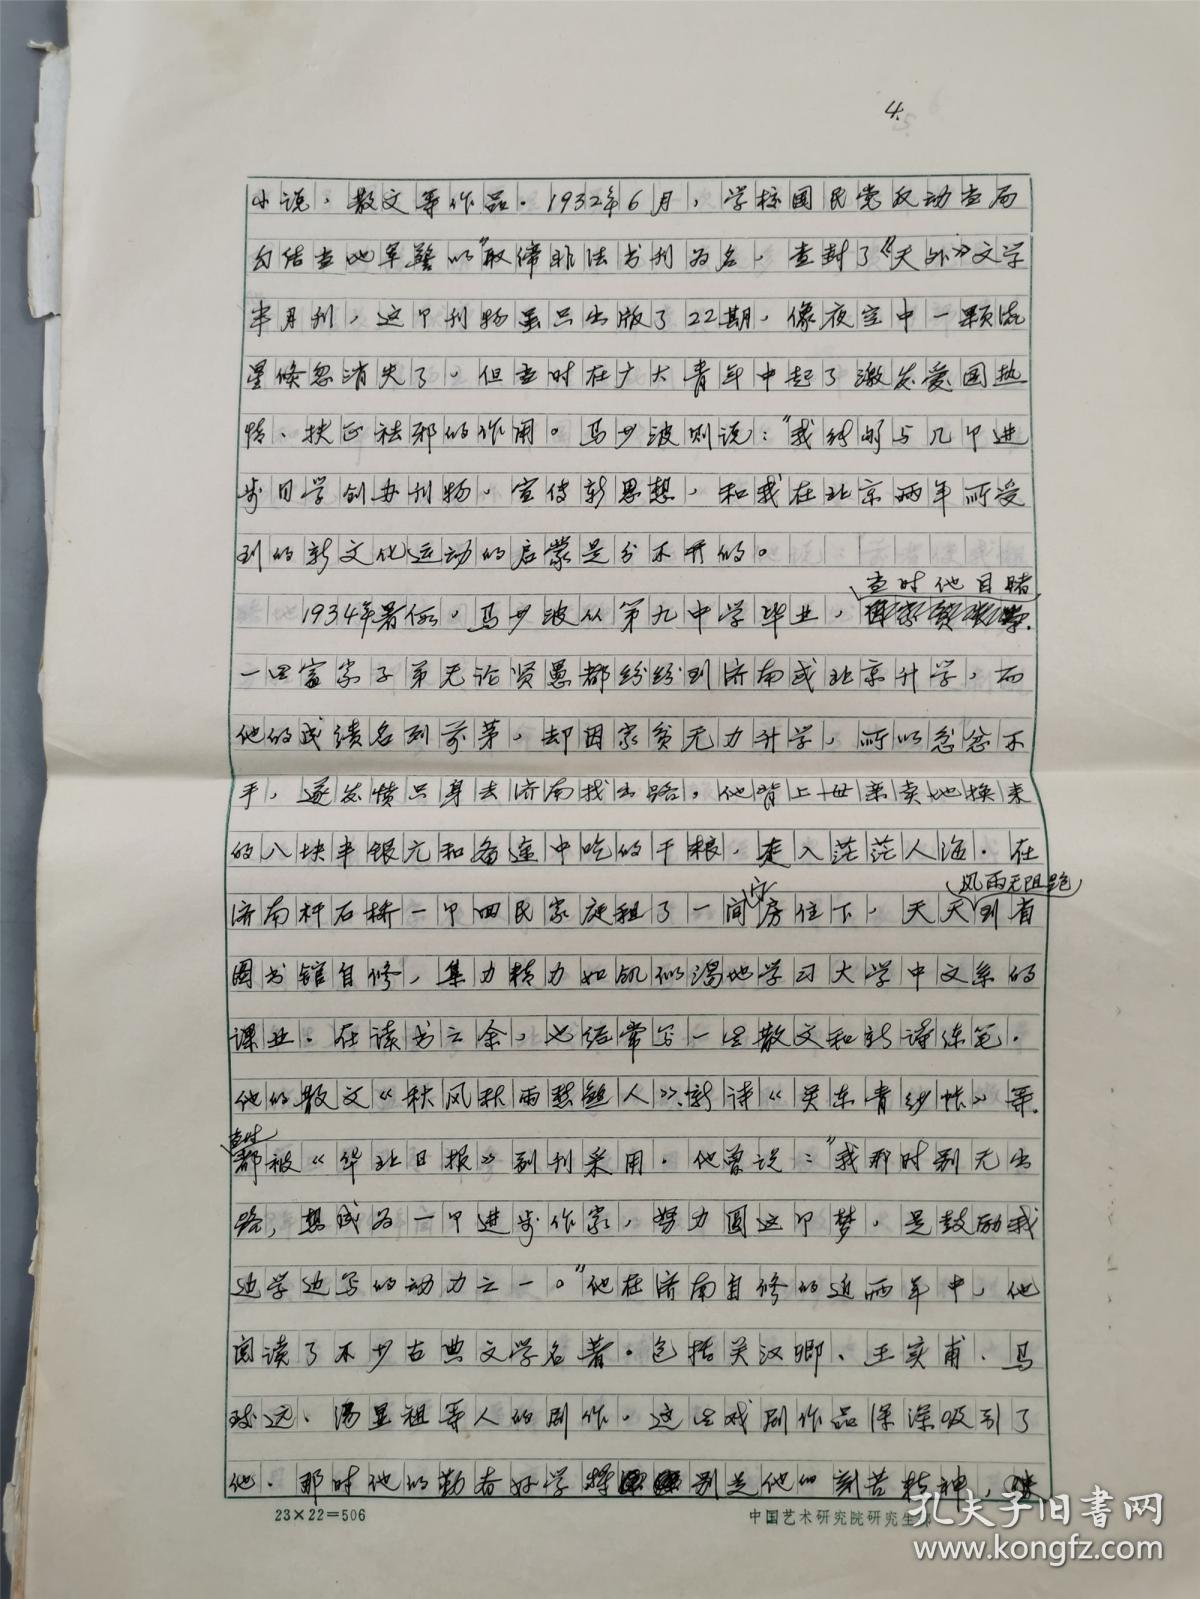 4.
小说、散文等作品。1932年6月，学校国民党反动当局
勾结当地军警以"取缔非法书刊为名，查封了《天外》文学
半月刊，这个刊物虽只出版了22期，像夜空中一颗流
星倏忽消失了。但当时在广大青年中起了激发爱国热
情、扶正祛邪的作用。马少波则说："我能够与几个进
步同学创办刊物，宣传新思想，和我在北京两年所受
到的新文化运动的启蒙是分不开的。
当时他目睹
1934年暑假，马少波从第九中学毕业，
一些富家子弟无论贤愚都纷纷到济南或北京升学，而
他的成绩名列前茅，却因家贫无力升学，所以忿忿不
平，遂发愤只身去济南找出路。他背上母亲卖地换来
的八块半银元和备途中吃的干粮，走入茫茫人海。在
风雨无阻地
济南杆石桥一个回民家庭租了一间小房住下，天天到省
图书馆自修，集力精力如饥似渴地学习大学中文系的
课业。在读书之余，也经常写一些散文和新诗练笔。
他的散文《秋风秋雨愁煞人》、新诗《关东青纱帐》等，
当时
都被《华北日报》副刊采用。他曾说："我那时别无出
路，想成为一个进步作家，努力圆这个梦，是鼓励我
边学边写的动力之一。"他在济南自修的近两年中，他
阅读了不少古典文学名著。包括关汉卿、王实甫、马
致远、汤显祖等人的剧作。这些戏剧作品深深吸引了
他。那时他的勤奋好学特别是他的刻苦精神，使
23×22=506
中国艺术研究院研究生部
孔夫子旧书网
www.kongfz.com